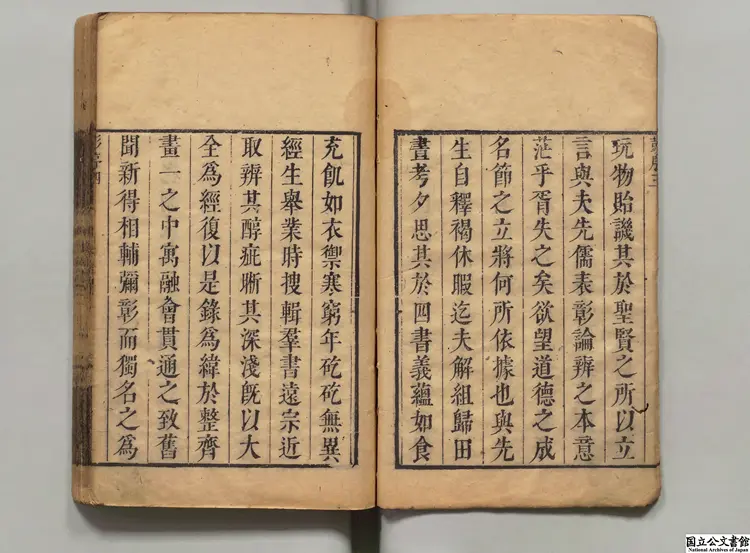 玩物貽譏其於聖賢之所以立
言與夫先儒表彰論辨之本意
茫乎胥失之矣欲望道德之成
名節之立將何所依據也與先
生自釋褐休暇迄夫解組歸田
晝考夕思其於四書義蘊如食
充飢如衣禦寒窮年矻矻無異
經生舉業時搜輯羣書遠宗近
取辨其醇疵晰其深淺旣以大
全爲經復以是錄爲緯於整齊
畫一之中寓融會貫通之致舊
聞新得相輔彌彰而獨名之爲
国立公文書館
National Archives of Japan